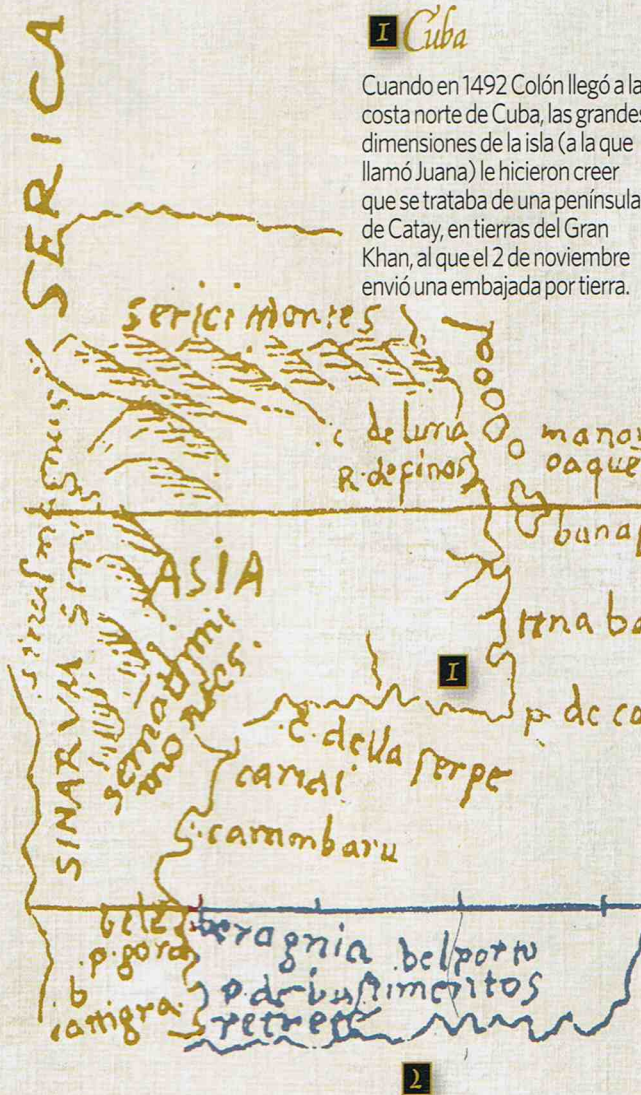 1 Cuba
Cuando en 1492 Colón llegó a la
costa norte de Cuba, las grandes
dimensiones de la isla (a la que
llamó Juana) le hicieron creer
que se trataba de una península
de Catay, en tierras del Gran
Khan, al que el 2 de noviembre
envió una embajada por tierra.
SERICA
serici montes
R. de pinos
ASIA
SINARVM
montes
1
p de
c. della serpe
cambaru
beragnia belporto
p. gorda
p. de bastimentos
b
retrete
2